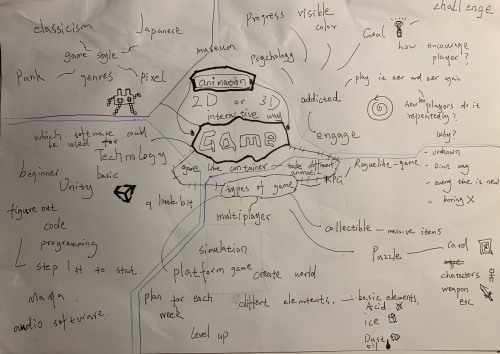 classicism
Japanese
game style
Punk
genres
pixel
museum
animation
2D or 3D
interactive way
GAME
Progress
visible
color
Psychology
addicted
engage
Goal
challenge
how encourage
player?
play it over and over again
how players do it
repeatedly?
why?
- unknown
- Don't
- every time is new
- boring X
Roguelite-game
RPG
game like container
take different
types of game
multiplayer
which software could
be used for
technology
beginner
basic
Unity
a little bit
figure out
code.
programming
step 1st to start.
Maya
audio software.
simulation
platform game
create world
plan for each
week
level up
collectible - massive items
Puzzle
card
characters
weapon
etc
- basic elements,
Acid
ice
Dust